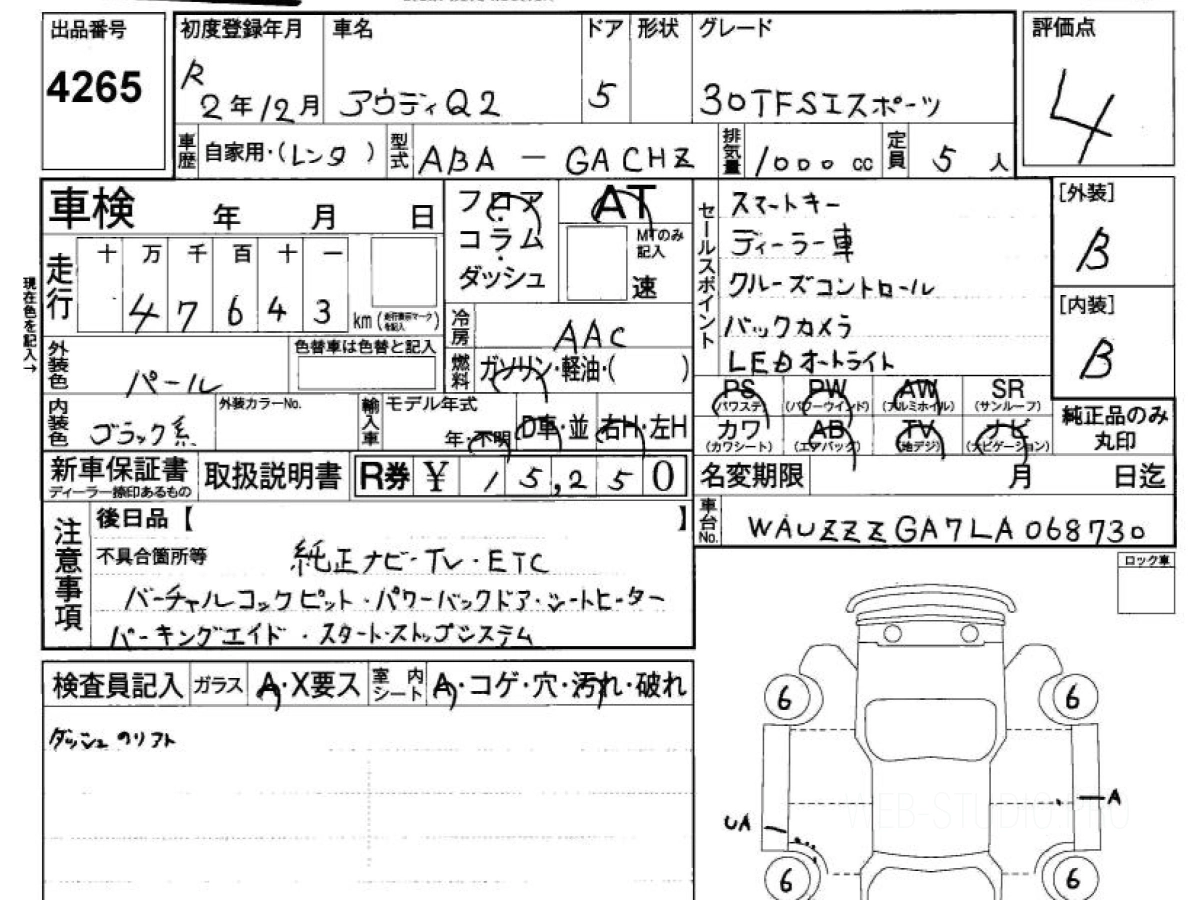 出品番号
4265
初度登録年月
R
2年12月
車名
アウディQ2
ドア
5
形状
グレード
30TFSIスポーツ
評価点
4
車歴
自家用・(レンタ )
型式
ABA - GACHZ
排気量
1000 cc
定員
5 人
車検 年 月 日
フロア
コラム
ダッシュ
AT
MTのみ記入
速
セールスポイント
スマートキー
ディーラー車
クルーズコントロール
バックカメラ
LEDオートライト
[外装]
B
[内装]
B
現在色を記入→
走行
十 万 千 百 十 一
4 7 6 4 3
km(走行表示マークを記入)
冷房
AAC
外装色
パール
色替車は色替と記入
燃料
ガソリン・軽油・( )
内装色
ブラック系
外装カラーNo.
輸入車
モデル年式
年・不明
D車・並
右H・左H
PS
(パワステ)
PW
(パワーウインド)
AW
(アルミホイル)
SR
(サンルーフ)
カワ
(カワシート)
AB
(エアバッグ)
TV
(地デジ)
ナビ
(ナビゲーション)
純正品のみ
丸印
新車保証書
ディーラー捺印あるもの
取扱説明書
R券 ¥ 15,250
名変期限 月 日迄
注意事項
後日品【 】
不具合箇所等
純正ナビ・TV・ETC
バーチャルコックピット・パワーバックドア・シートヒーター
パーキングエイド・スタート・ストップシステム
車台No.
WAUZZZGA7LA068730
ロック車
検査員記入
ガラス
A・X要ス
室内シート
A・コゲ・穴・汚れ・破れ
ダッシュのリフト
6
6
A
UA
6
6
WEB-STUDIO.PRO